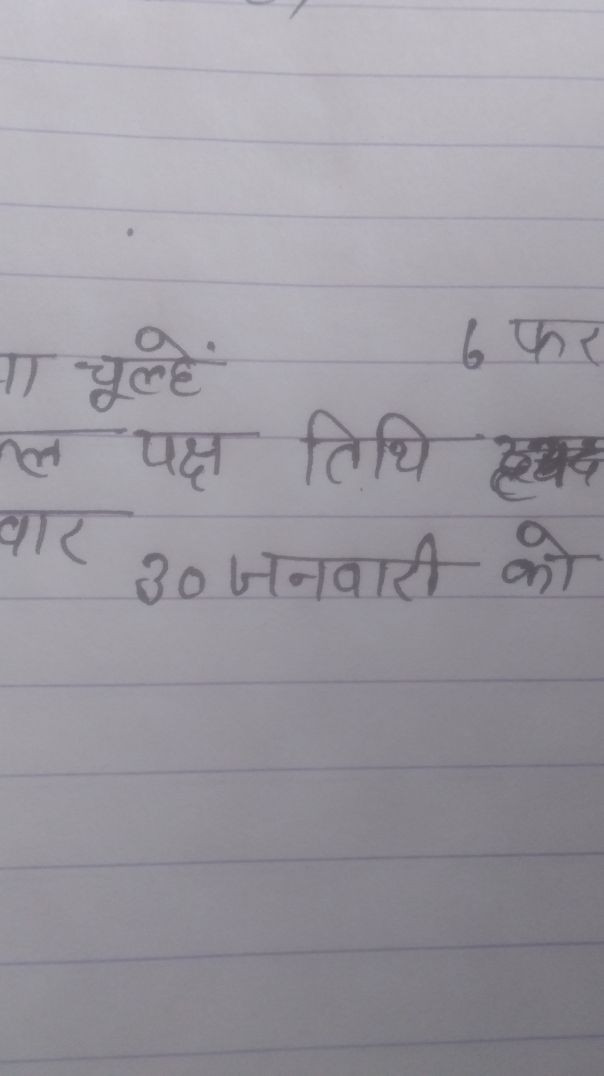 चूल्हें 6 फर
पक्ष तिथि
वार 30 जनवारी को